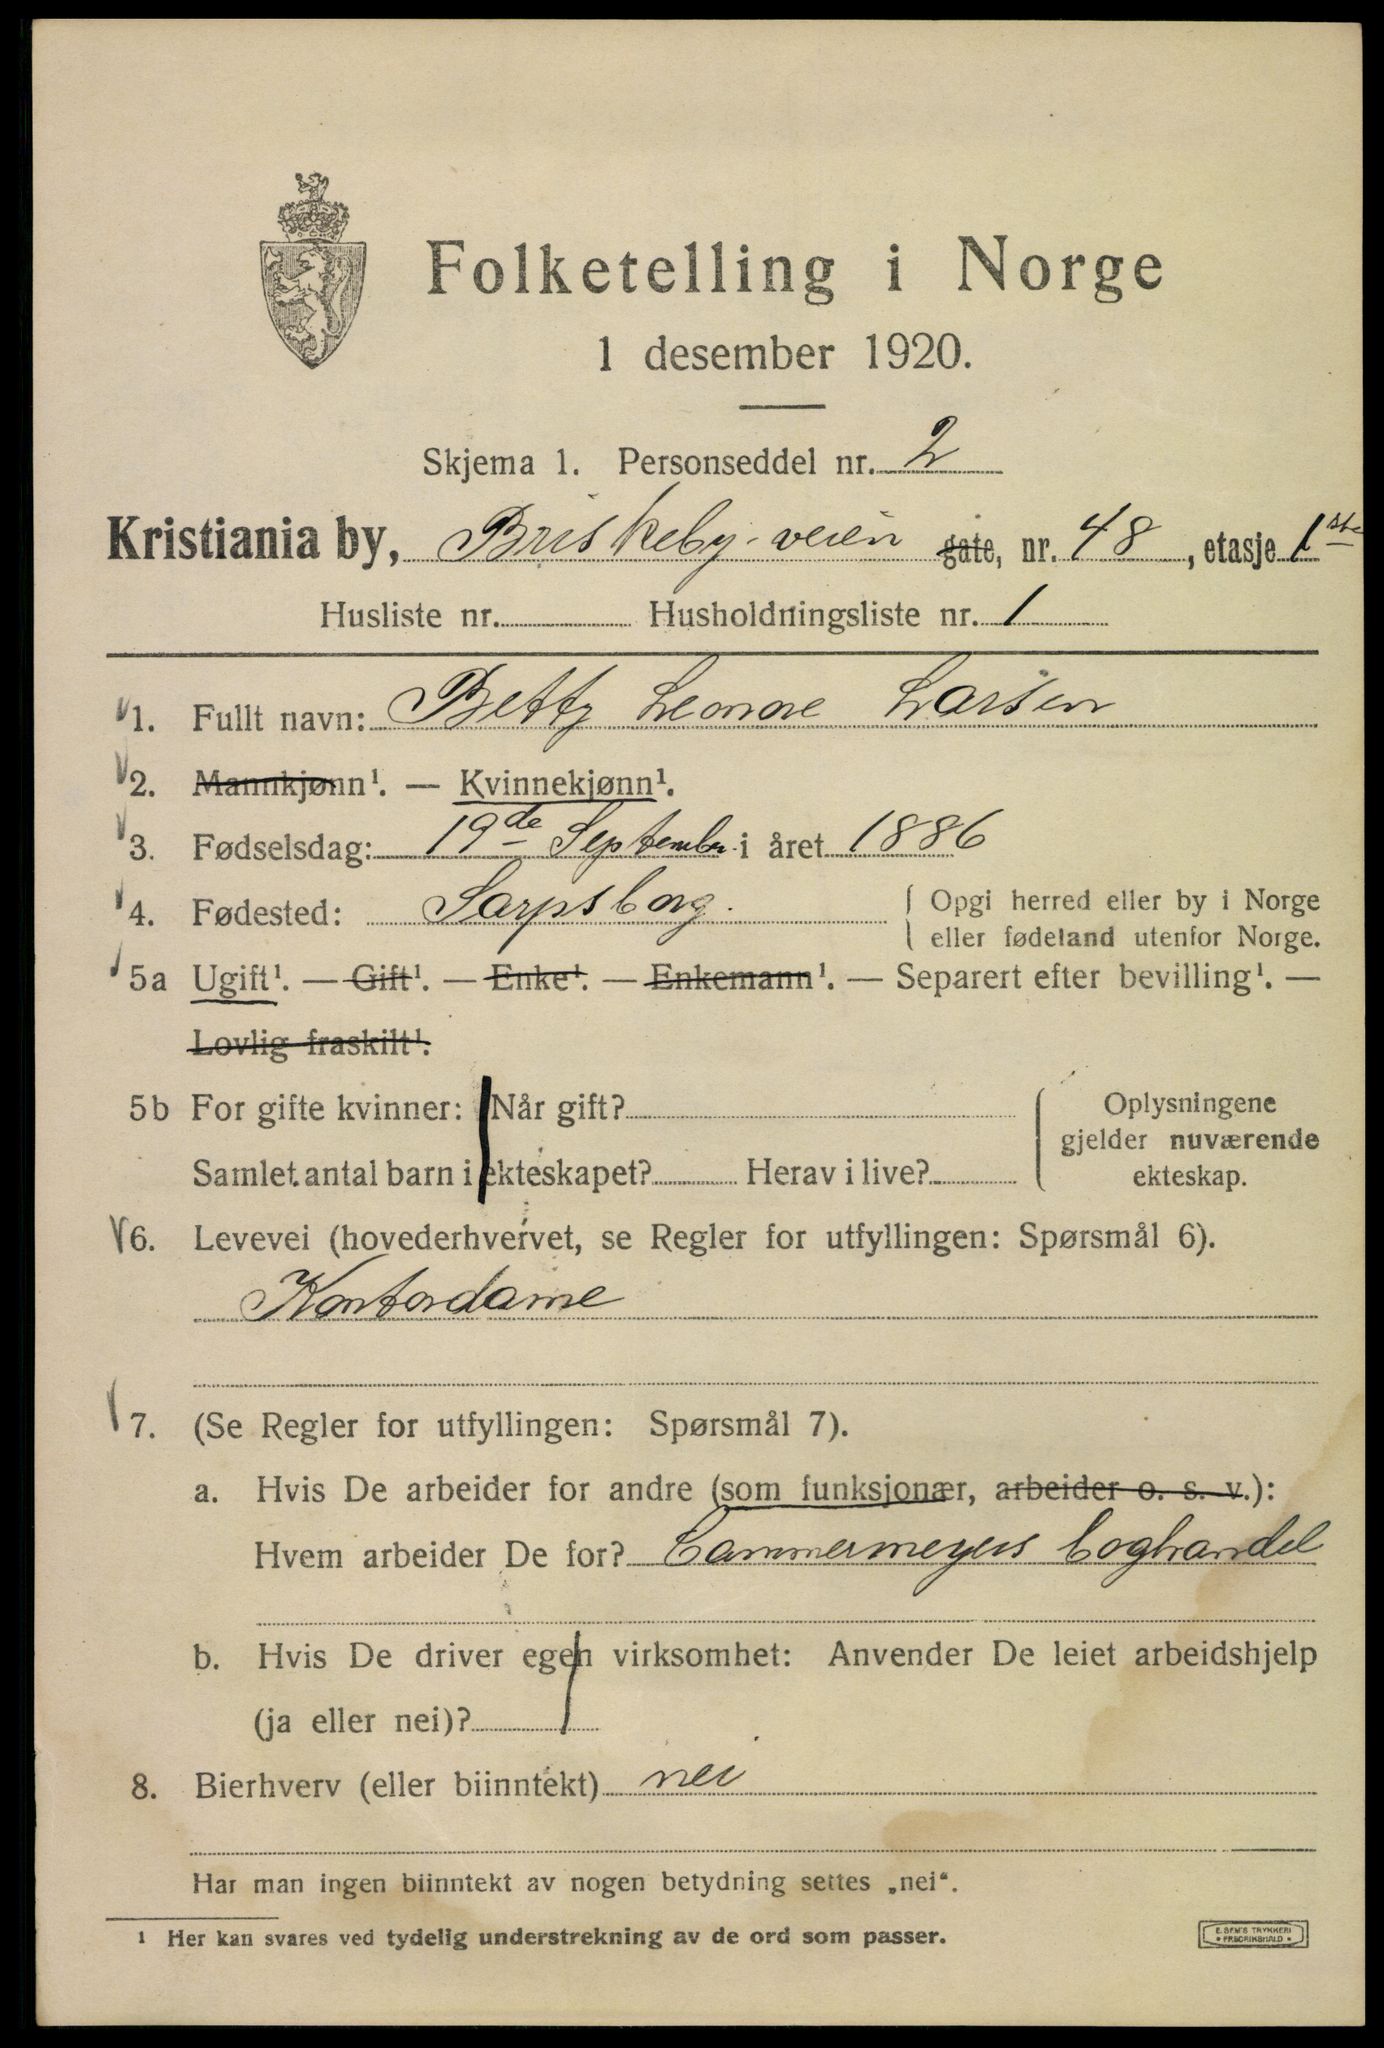 Folketelling i Norge
1 desember 1920.
Skjema 1. Personseddel nr. 2
Kristiania by, Briskeby-veien gate, nr. 48, etasje 1ste
Husliste nr. Husholdningsliste nr. 1
1. Fullt navn: Betty Leonore Larsen
2. Mannkjønn¹. — Kvinnekjønn¹.
3. Fødselsdag: 19de September i året 1886
4. Fødested: Sarpsborg. Opgi herred eller by i Norge
eller fødeland utenfor Norge.
5a Ugift¹. — Gift¹. — Enke¹. — Enkemann¹. — Separert efter bevilling¹. —
Lovlig fraskilt¹.
5b For gifte kvinner: Når gift? Oplysningene
gjelder nuværende
Samlet antal barn i ekteskapet? Herav i live? ekteskap.
6. Levevei (hovederhvervet, se Regler for utfyllingen: Spørsmål 6).
Kontordame
7. (Se Regler for utfyllingen: Spørsmål 7).
a. Hvis De arbeider for andre (som funksjonær, arbeider o. s. v.):
Hvem arbeider De for? Cammermeyers boghandel
b. Hvis De driver egen virksomhet: Anvender De leiet arbeidshjelp
(ja eller nei)?
8. Bierhverv (eller biinntekt) nei
Har man ingen biinntekt av nogen betydning settes „nei“.
¹ Her kan svares ved tydelig understrekning av de ord som passer.
E. SEM'S TRYKKERI
• FREDRIKSHALD •